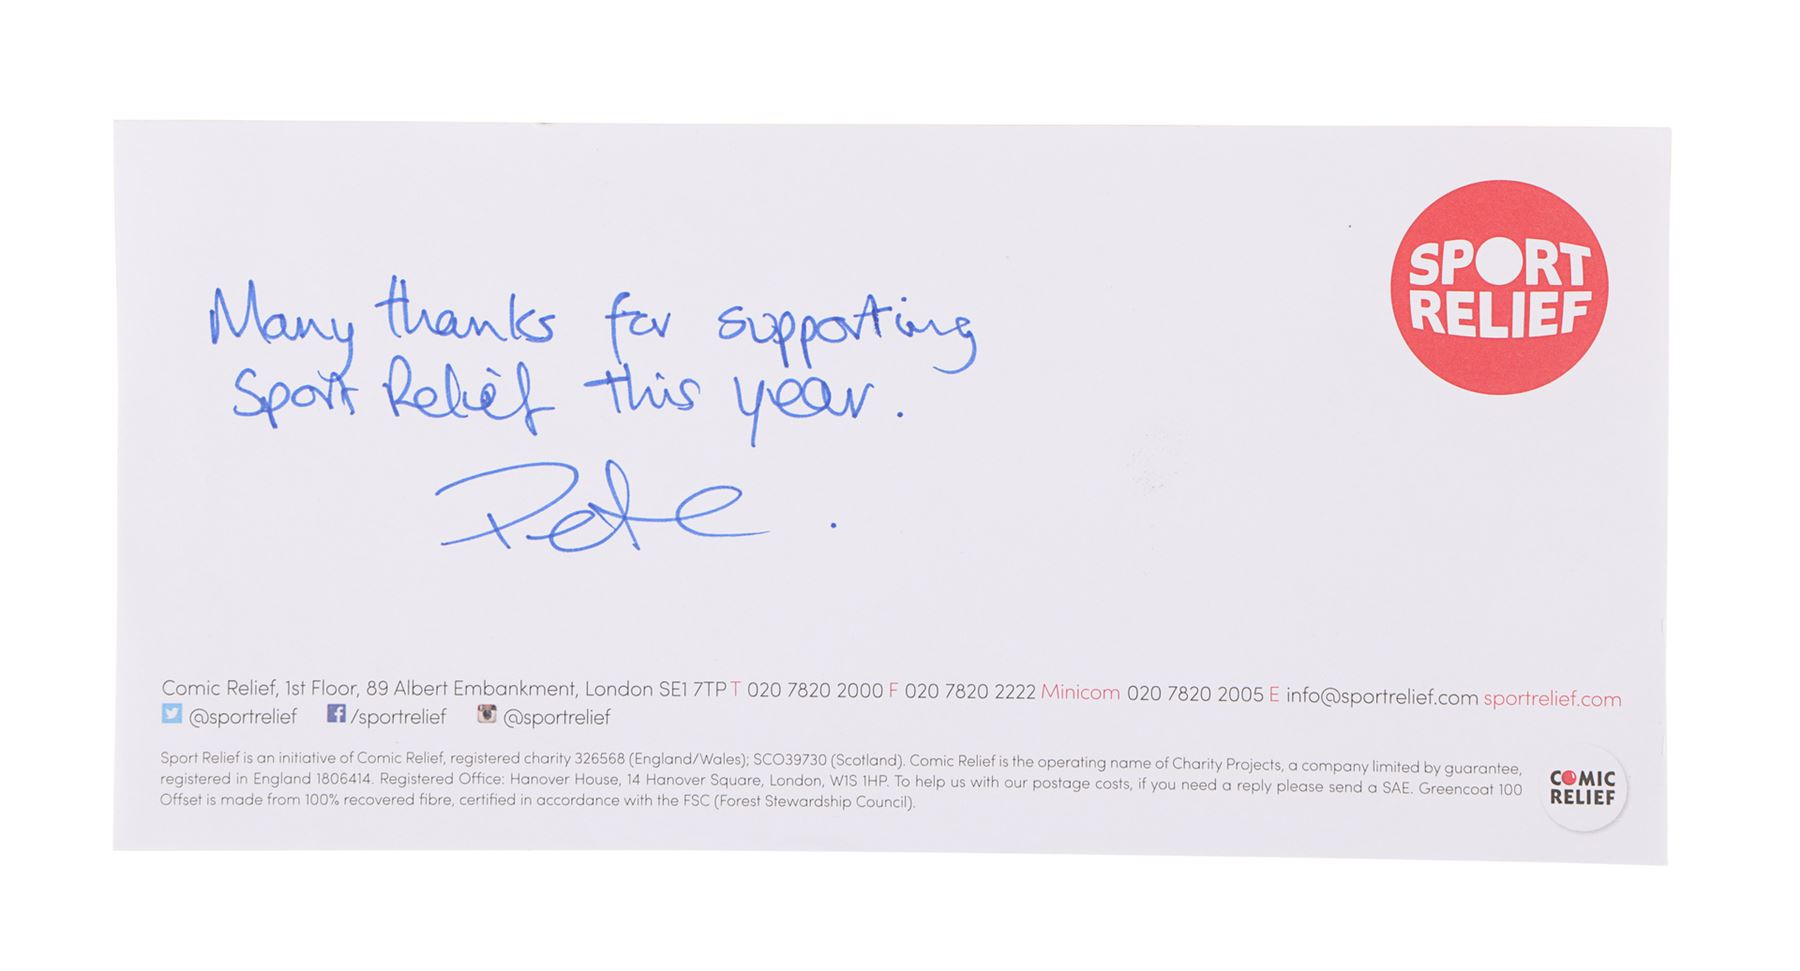 SPORT
RELIEF
Many thanks for supporting
Sport Relief this year.
Pete.
Comic Relief, 1st Floor, 89 Albert Embankment, London SE1 7TP T 020 7820 2000 F 020 7820 2222 Minicom 020 7820 2005 E info@sportrelief.com sportrelief.com
@sportrelief /sportrelief @sportrelief
Sport Relief is an initiative of Comic Relief, registered charity 326568 (England/Wales); SCO39730 (Scotland). Comic Relief is the operating name of Charity Projects, a company limited by guarantee,
registered in England 1806414. Registered Office: Hanover House, 14 Hanover Square, London, W1S 1HP. To help us with our postage costs, if you need a reply please send a SAE. Greencoat 100
Offset is made from 100% recovered fibre, certified in accordance with the FSC (Forest Stewardship Council).
COMIC
RELIEF